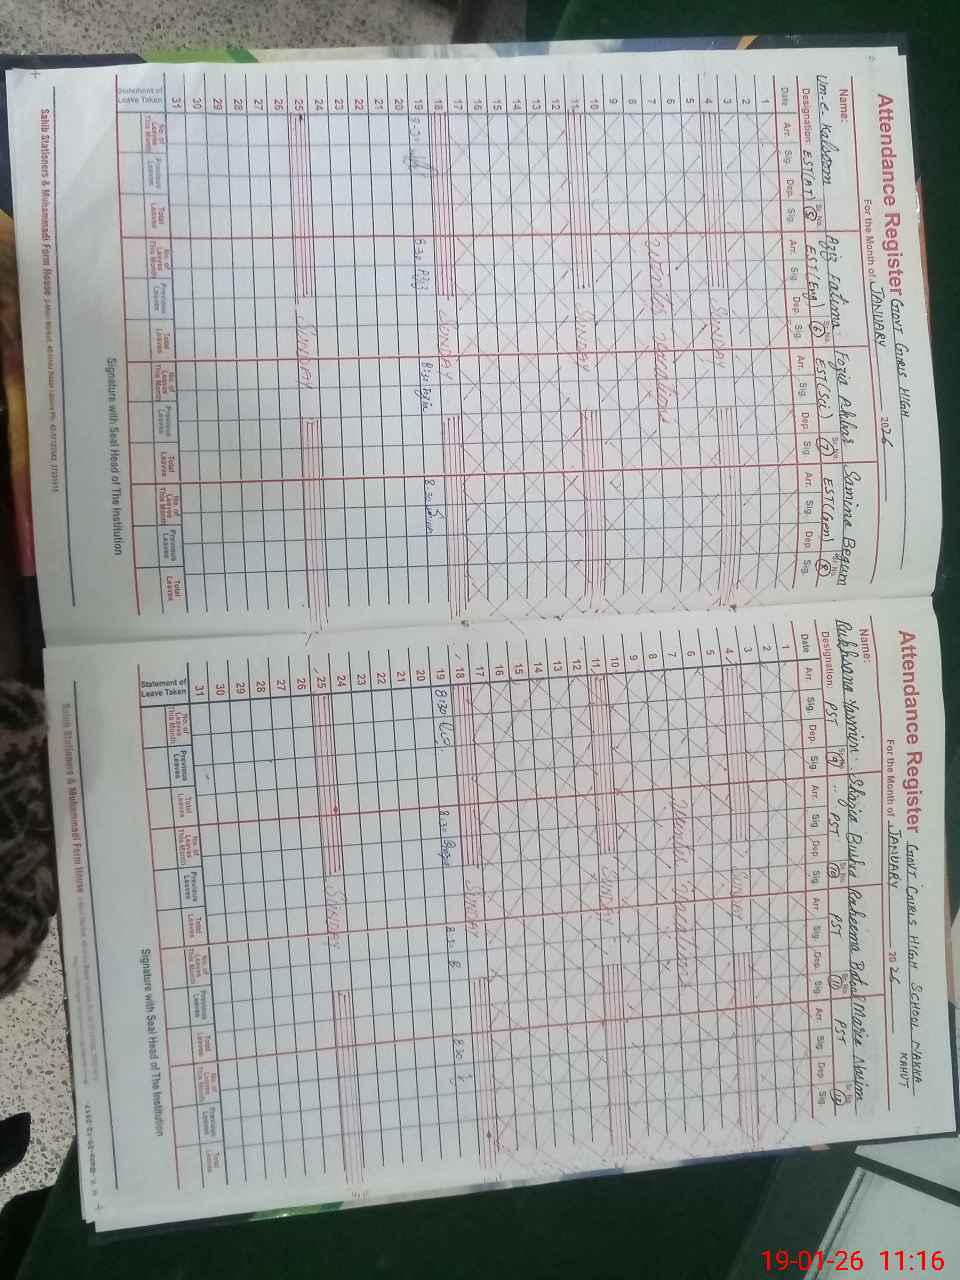 Attendance Register GOVT GIRLS HIGH
For the Month of JANUARY 2026
Name: Um-e-Kalsoom Aziz Fatima Fozia Akbar Samina Begum
Designation: EST(AT) Sr.No. 5 EST(Eng) Sr.No. 6 EST(Sci) Sr.No. 7 EST(Gen) Sr.No. 8
Date Arr. Sig. Dep. Sig. Arr. Sig. Dep. Sig. Arr. Sig. Dep. Sig. Arr. Sig. Dep. Sig.
1
2
3
4 SUNDAY
5
6
7 Winter Vacation
8
9
10
11 SUNDAY
12
13
14
15
16
17
18 SUNDAY
19 8:30 8:30 Aziz 8:30 Fozia 8:30
20
21
22
23
24
25 SUNDAY
26
27
28
29
30
31
Statement of Leave Taken No. of Leaves This Month Previous Leaves Total Leaves No. of Leaves This Month Previous Leaves Total Leaves No. of Leaves This Month Previous Leaves Total Leaves No. of Leaves This Month Previous Leaves Total Leaves
Signature with Seal Head of The Institution
Sahib Stationers & Muhammadi Form House
Attendance Register GOVT GIRLS HIGH SCHOOL NAKKA KAHUT
For the Month of JANUARY 2026
Name: Rukhsana Yasmin Shazia Bushra Raheema Maria Naim
Designation: PST Sr.No. 9 PST Sr.No. 10 PST Sr.No. 11 PST Sr.No. 12
Date Arr. Sig. Dep. Sig. Arr. Sig. Dep. Sig. Arr. Sig. Dep. Sig. Arr. Sig. Dep. Sig.
1
2
3
4 SUNDAY
5
6
7 Winter Vacation
8
9
10
11 SUNDAY
12
13
14
15
16
17
18 SUNDAY
19 8:30 8:30 8:30 8:30
20
21
22
23
24
25 SUNDAY
26
27
28
29
30
31
Statement of Leave Taken No. of Leaves This Month Previous Leaves Total Leaves No. of Leaves This Month Previous Leaves Total Leaves No. of Leaves This Month Previous Leaves Total Leaves No. of Leaves This Month Previous Leaves Total Leaves
Signature with Seal Head of The Institution
Sahib Stationers & Muhammadi Form House
19-01-26 11:16